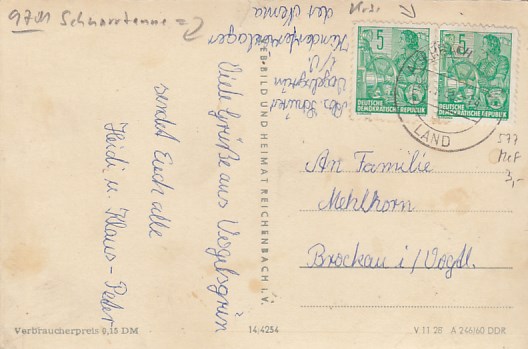 9701 Schnarrtanne =>
Viele Grüße aus Vogelsgrün
sendet Euch alle
Heidi u. Klaus-Peter
Vogelsgrün
i/V.
Kinderferienlager
der Nema
5 5
DEUTSCHE
DEMOKRATISCHE REPUBLIK
DEUTSCHE
DEMOKRATISCHE REPUBLIK
LAND
577
3,-
An Familie
Mehlhorn
Brockau i/Vogtl.
BILD UND HEIMAT REICHENBACH I. V.
Verbraucherpreis 0,15 DM
14/4254
V 11 28 A 246/60 DDR